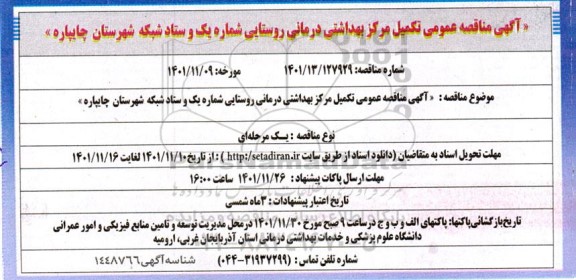 « آگهی مناقصه عمومی تکمیل مرکز بهداشتی درمانی روستایی شماره یک و ستاد شبکه شهرستان چایپاره »
شماره مناقصه: ۱۴۰۱/۱۳/۱۲۷۹۲۹ مورخه: ۱۴۰۱/۱۱/۰۹
موضوع مناقصه : « آگهی مناقصه عمومی تکمیل مرکز بهداشتی درمانی روستایی شماره یک و ستاد شبکه شهرستان چایپاره »
نوع مناقصه : یک مرحله‌ای
مهلت تحویل اسناد به متقاضیان (دانلود اسناد از طریق سایت http:/setadiran.ir ) : از تاریخ ۱۴۰۱/۱۱/۱۰ لغایت ۱۴۰۱/۱۱/۱۶
مهلت ارسال پاکات پیشنهاد : ۱۴۰۱/۱۱/۲۶ ساعت ۱۶:۰۰
تاریخ اعتبار پیشنهادات : ۳ ماه شمسی
تاریخ بازگشائی پاکتها: پاکتهای الف و ب و ج در ساعت ۹ صبح مورخ ۱۴۰۱/۱۱/۳۰ در محل مدیریت توسعه و تامین منابع فیزیکی و امور عمرانی
دانشگاه علوم پزشکی و خدمات بهداشتی درمانی استان آذربایجان غربی، ارومیه
شماره تلفن تماس : (۳۱۹۳۷۲۹۹-۰۴۴) شناسه آگهی ۱۴۴۸۷۶۶